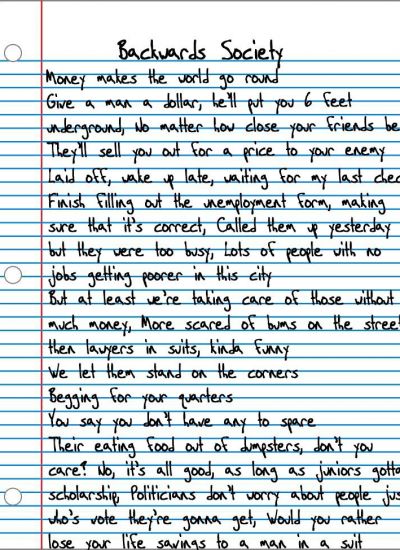 Backwards Society
Money makes the world go round
Give a man a dollar, he'll put you 6 feet
underground, No matter how close your friends be
They'll sell you out for a price to your enemy
Laid off, wake up late, waiting for my last chec
Finish filling out the unemployment form, making
sure that it's correct, Called them up yesterday
but they were too busy, Lots of people with no
jobs getting poorer in this city
But at least we're taking care of those without
much money, More scared of bums on the street
then lawyers in suits, kinda funny
We let them stand on the corners
Begging for your quarters
You say you don't have any to spare
Their eating food out of dumpsters, don't you
care? No, it's all good, as long as juniors gotta
scholarship, Politicians don't worry about people jus
who's vote they're gonna get, Would you rather
lose your life savings to a man in a suit